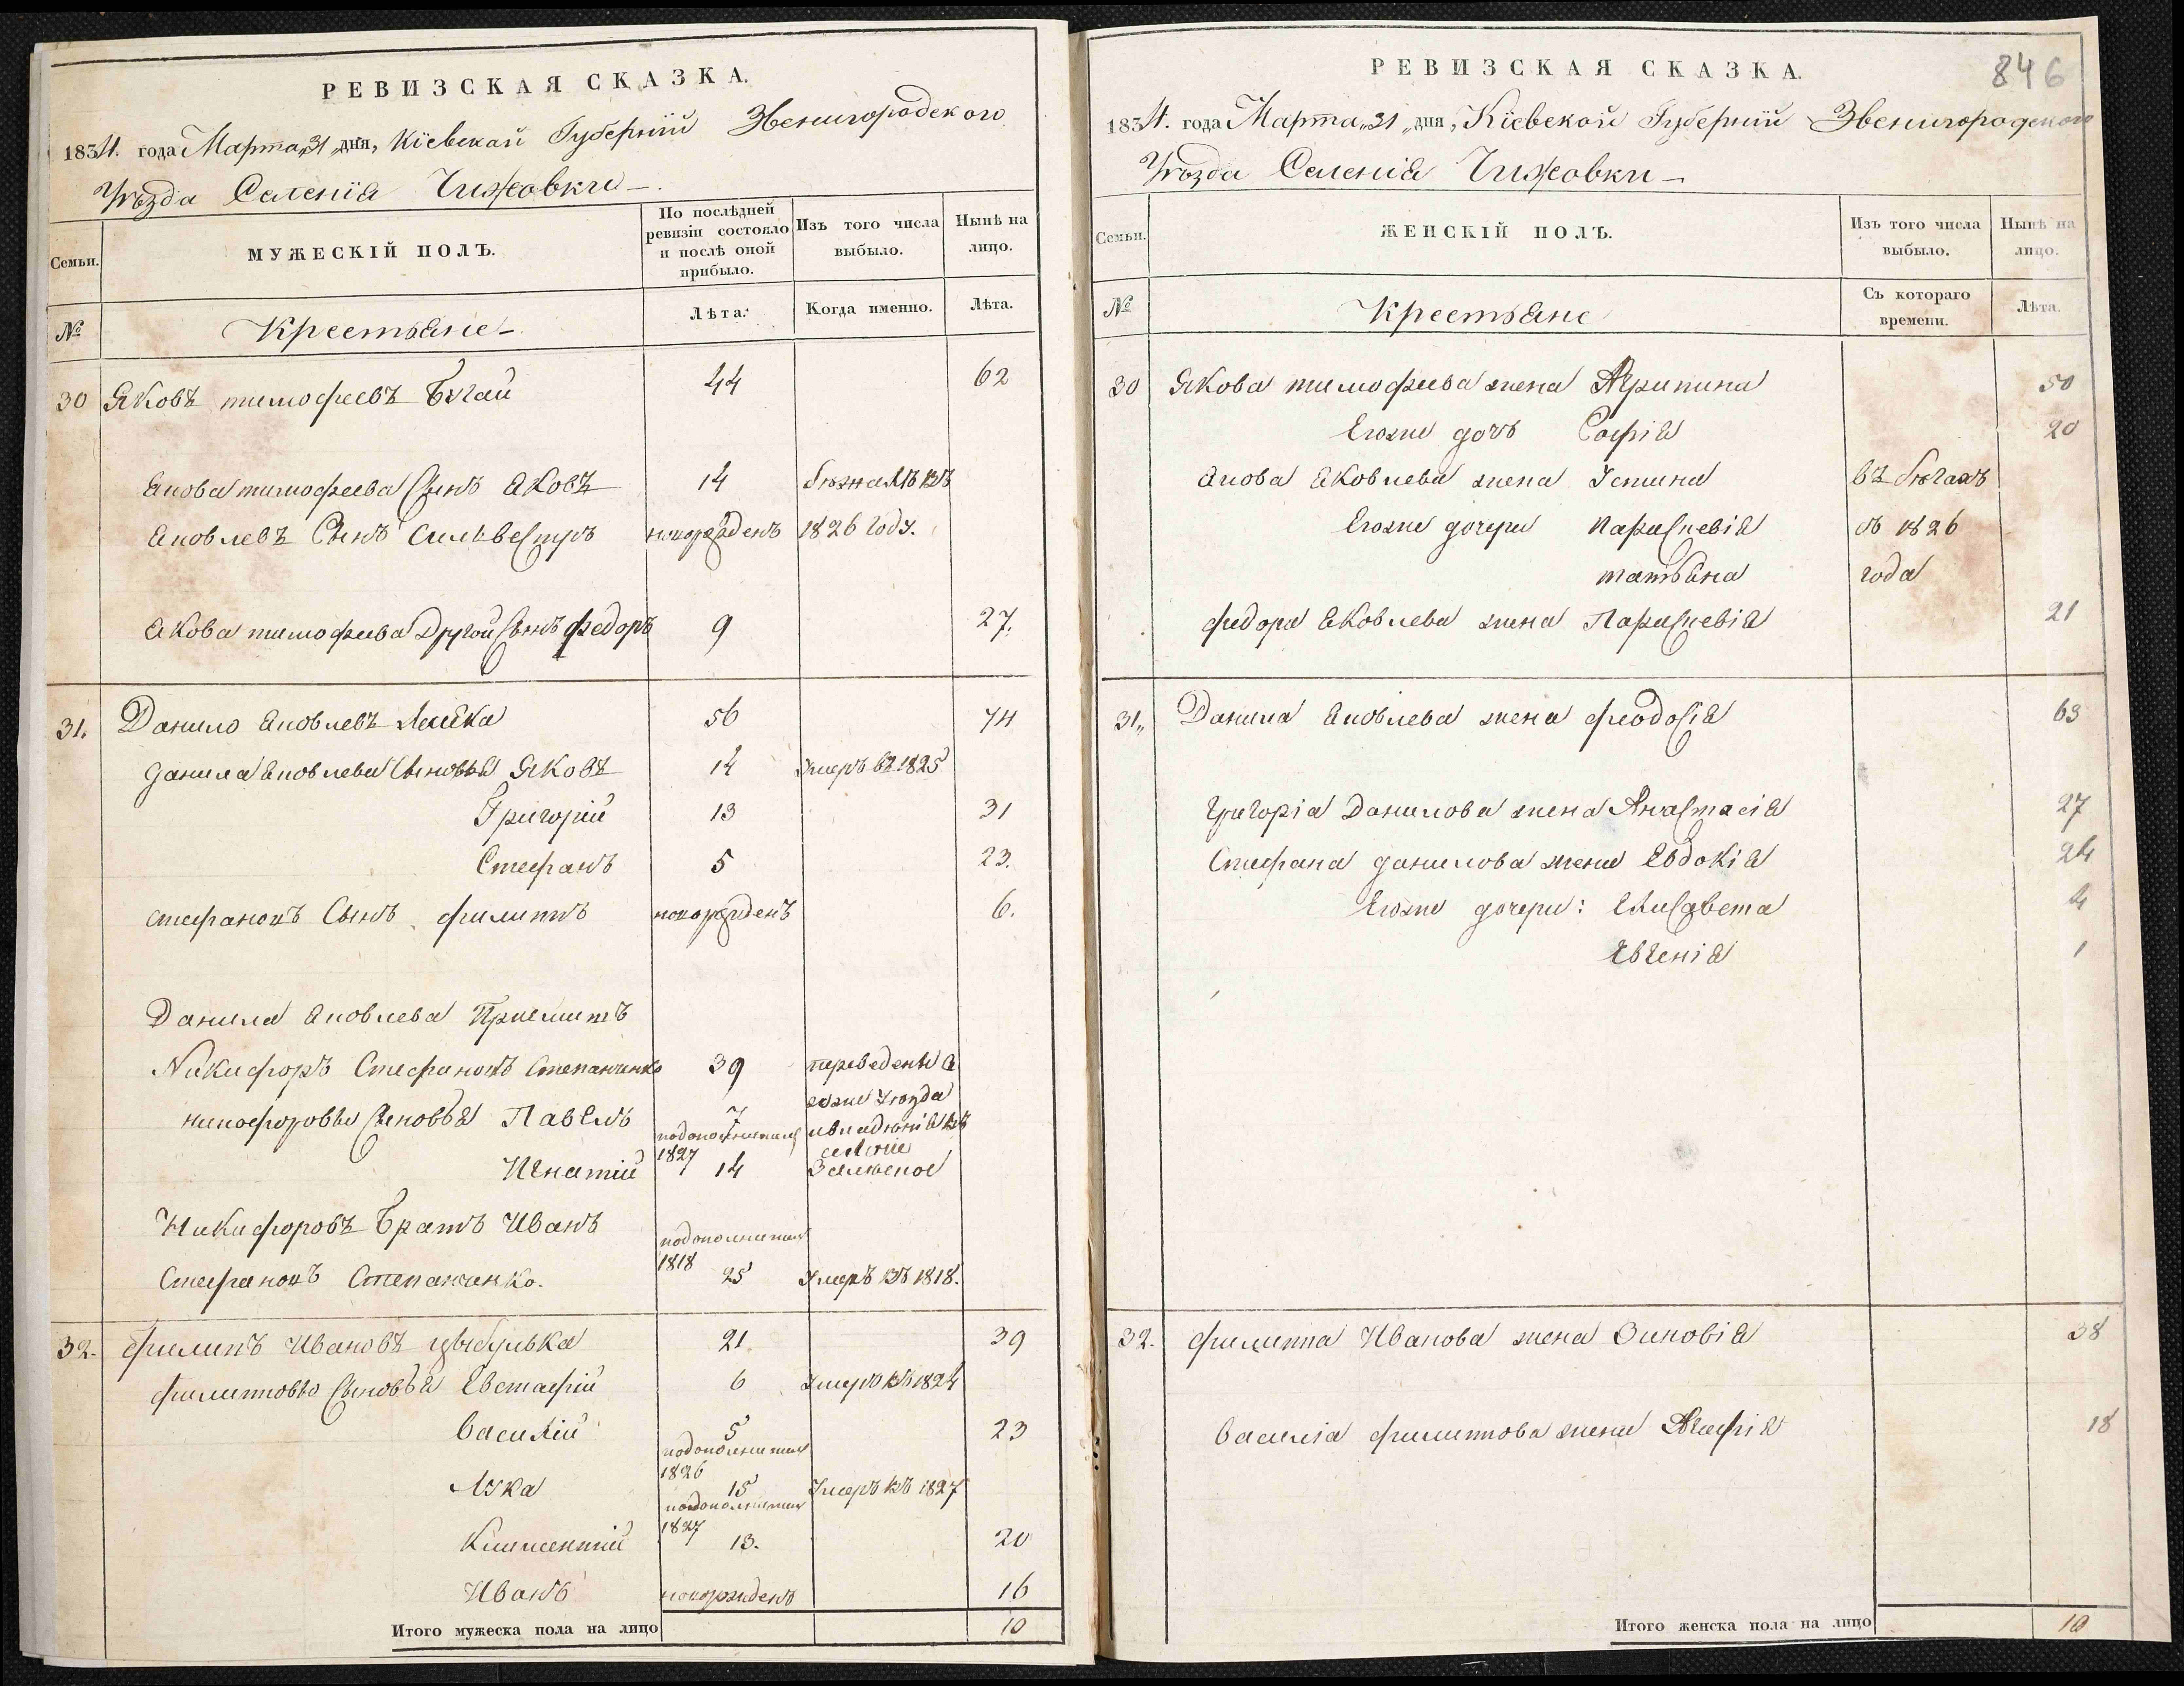 РЕВИЗСКАЯ СКАЗКА.
1834. года Марта „31 „ дня, Кіевской Губерніи Звенигородского
Уѣзда Селенія Чижовки
Семьи.
МУЖЕСКІЙ ПОЛЪ.
По послѣдней ревизіи состояло и послѣ оной прибыло.
Изъ того числа выбыло.
Нынѣ на лицо.
№
Крестьяне
Лѣта.
Когда именно.
Лѣта.
30 Яковъ тимофеевъ Бугай 44 62
Якова тимофеева Сынъ Яковъ 14 бѣжалъ въ
Яковлевъ Сынъ Сильвестръ новорожденъ 1826 году.
Якова тимофеева Другой Сынъ федоръ 9 27.
31. Данило Яковлевъ 56 74
данила Яковлева Сыновья Яковъ 14 Умеръ въ 1825
Григорій 13 31
Стефанъ 5 23.
стефановъ Сынъ филиппъ новорожденъ 6.
Данила Яковлева
Никифоръ Стефановъ Степанченко 39 переведены
тогоже Уѣзда
никифоровы Сыновья Павелъ 7 въ
подополнителн селеніе
1827
Игнатій 14
Никифоровъ Братъ Иванъ подополнителн
1818
Стефановъ Степанченко. 25 Умеръ въ 1818.
32. филипъ Ивановъ цыбулька 21 39
филиповы Сыновья Евстафій 6 Умеръ въ 1824
Василій 5 23
подополнителн
1826
Лука 15 Умеръ въ 1827
подополнителн
1827
Климентій 13. 20
Иванъ новорожденъ 16
Итого мужеска пола на лицо 10
846
РЕВИЗСКАЯ СКАЗКА.
1834. года Марта „31 „ дня, Кіевской Губерніи Звенигородского
Уѣзда Селенія Чижовки
Семьи.
ЖЕНСКІЙ ПОЛЪ.
Изъ того числа выбыло.
Нынѣ на лицо.
№
Крестьяне
Съ котораго времени.
Лѣта.
30 Якова тимофеева жена Агрипина 50
Егоже дочь Софія 20
Якова Яковлева жена Устина въ бѣгахъ
Егоже дочери Параскевія съ 1826
татьяна года
федора Яковлева жена Параскевія 21
31„ Данила Яковлева жена феодосія 63
григорія Данилова жена Анастасія 27
Стефана данилова жена Евдокія 24
Егоже дочери: Елисавета 4
Евгенія 1
32. филиппа Иванова жена Зиновія 38
Василія филиппова жена Агафія 18
Итого женска пола на лицо 10